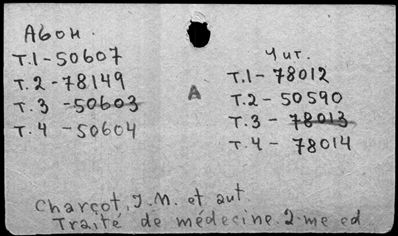 Абон.
т.1-50607
т.2-78149
т.3-50603
т.4-50604
А
Чит.
т.1-78012
т.2-50590
т.3-78013
т.4-78014
Charçot, J.M. et aut.
Traité de médecine. 2-me ed